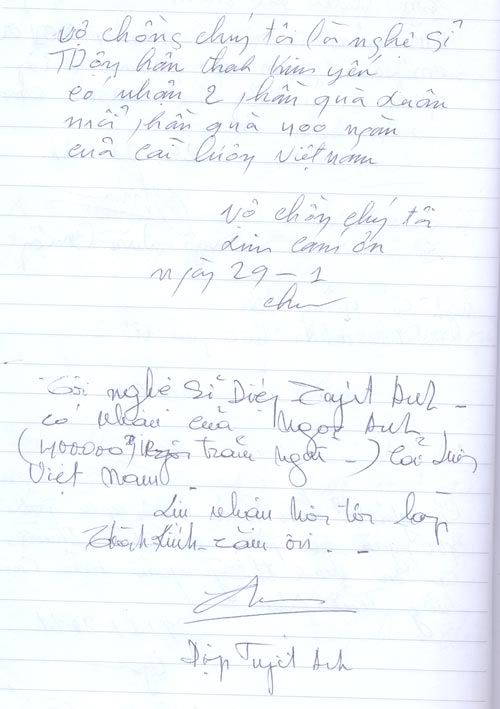 vợ chồng chúng tôi là nghệ sĩ
Thanh Kim Yến
có nhận 2 phần quà xuân
mỗi phần quà 400 ngàn
của cải lương việt nam
vợ chồng chúng tôi
xin cám ơn
ngày 29 - 1
Tôi nghệ sĩ Diệp Tuyết Anh -
có nhận của Ngọc Anh
(400000đ trăm ngàn -) Cải lương
Việt Nam -
Xin nhận nơi tôi lòng
thành kính cảm ơn. -
Diệp Tuyết Anh